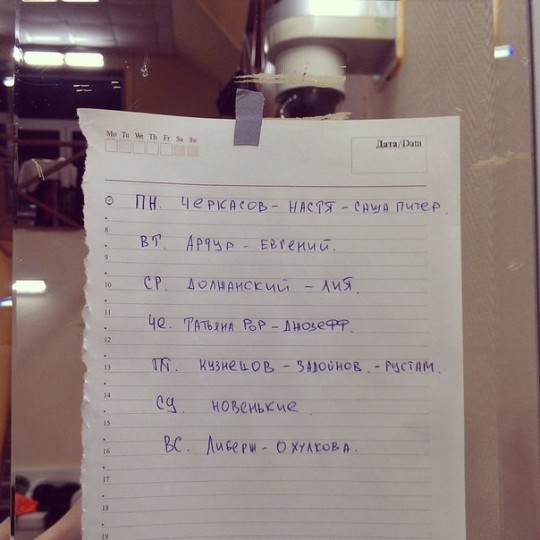 Mo Tu We Th Fr Sa Su
Дата/Data
ПН. ЧЕРКАСОВ - НАСТЯ - САША ПИТЕР.
8
ВТ. АРТУР - ЕВГЕНИЙ.
9
10 СР. ДОЛЖАНСКИЙ - ЛИЯ.
11
ЧЕ. ТАТЬЯНА РОР - ДЖОЗЕФФ.
12
13 ПТ. КУЗНЕЦОВ - ЗАДОЙНОВ. - РУСТАМ.
14
СУ. НОВЕНЬКИЕ
15
16 ВС. ЛИБЕРЖ - ОХУЛКОВА.
17
18
19